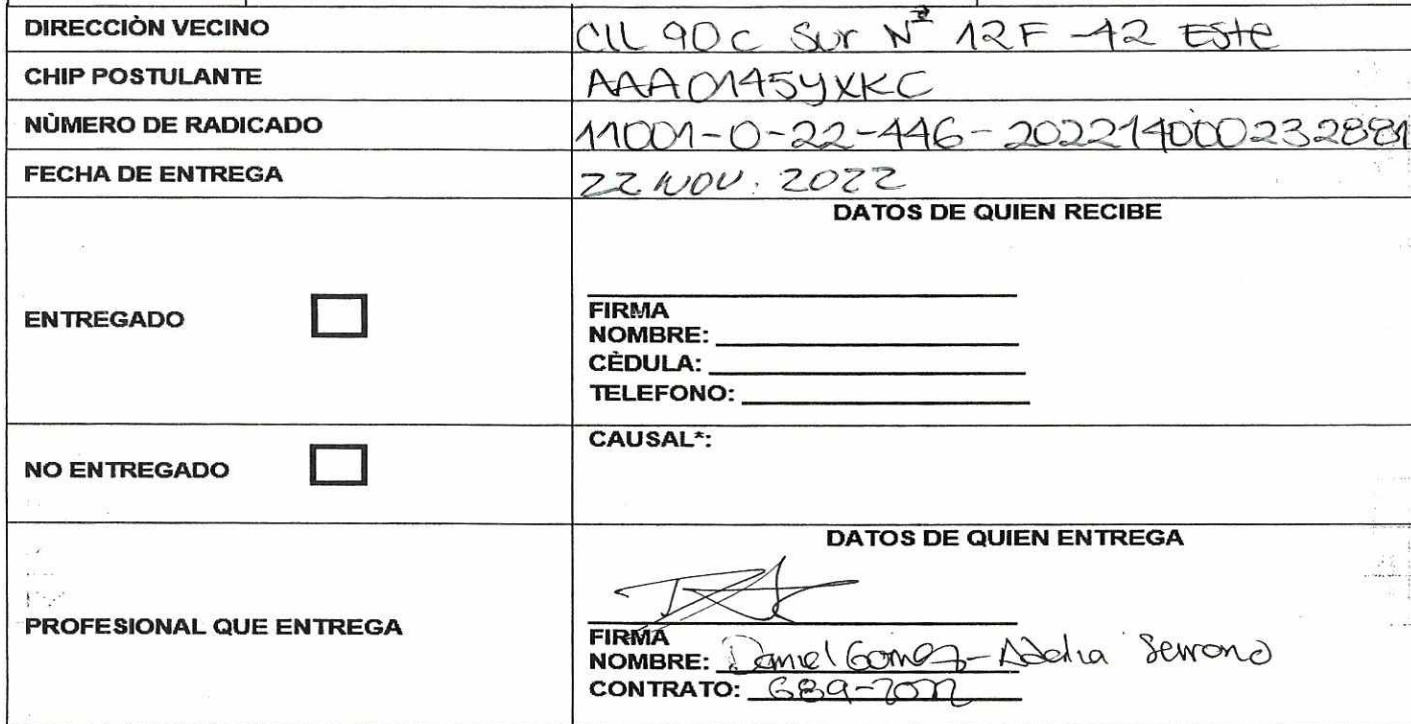 DIRECCIÒN VECINO CLL 90C Sur Nº 12F-42 Este
CHIP POSTULANTE AAA0145YXKC
NÙMERO DE RADICADO 11001-0-22-446-202214000232881
FECHA DE ENTREGA 22 NOV. 2022
DATOS DE QUIEN RECIBE
ENTREGADO
FIRMA
NOMBRE:
CÈDULA:
TELEFONO:
NO ENTREGADO
CAUSAL*:
DATOS DE QUIEN ENTREGA
PROFESIONAL QUE ENTREGA
FIRMA
NOMBRE: Daniel Gomez - Serrano
CONTRATO: 689-2022